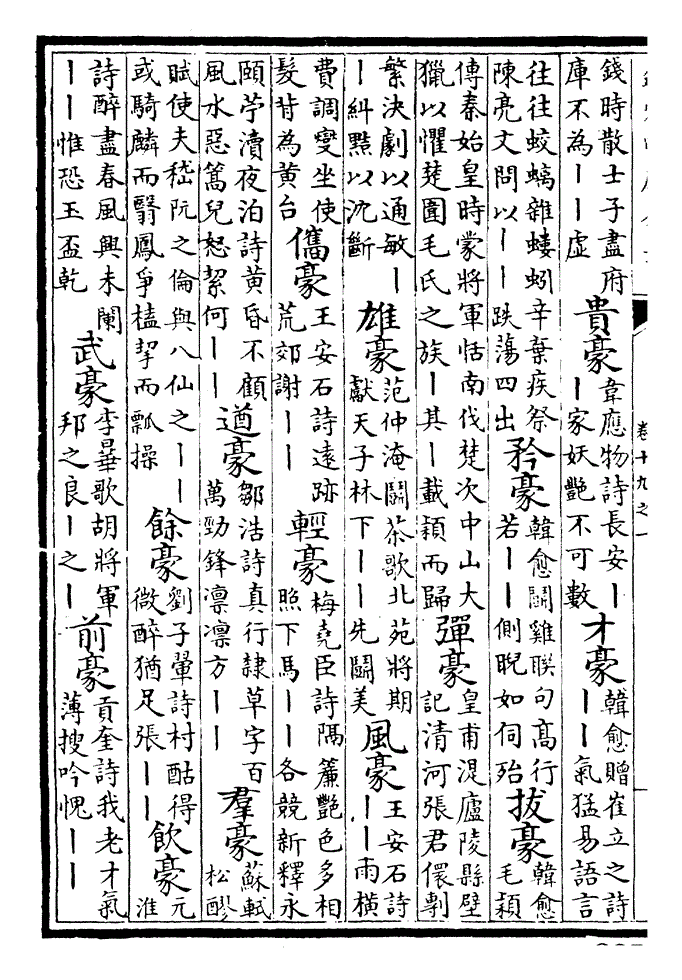 錢時散士子盡府庫不為丨丨虛 貴豪 韋應物詩長安丨丨家妖艷不可數 才豪 韓愈贈崔立之詩丨丨氣猛易語言
往往蛟螭雜螻蚓辛棄疾祭陳亮文問以丨丨跌蕩四出 矜豪 韓愈鬬雞聯句高行若丨丨側睨如伺殆 拔豪 韓愈毛穎
傳秦始皇時蒙將軍恬南伐楚次中山大獵以懼楚圍毛氏之族丨其丨載穎而歸 彈豪 皇甫湜廬陵縣壁記清河張君儇剸
繁決劇以通敏丨丨糾黠以沈斷 雄豪 范仲淹鬬茶歌北苑將期獻天子林下丨丨先鬬美 風豪 王安石詩丨丨雨橫
費調燮坐使髮背為黄台 儁豪 王安石詩遠跡荒郊謝丨丨 輕豪 梅堯臣詩隔簾艷色多相照下馬丨丨各競新釋永
頤苧瀆夜泊詩黄昏不顧風水惡篙兒怒絜何丨丨 遒豪 鄒浩詩真行隸草字百萬勁鋒凛凛方丨丨 羣豪 蘇軾松醪
賦使夫嵇阮之倫與八仙之丨丨或騎麟而翳鳳爭榼挈而瓢操 餘豪 劉子翬詩村酤得微醉猶足張丨丨 飲豪 元淮
詩醉盡春風興未闌丨丨惟恐玉盃乾 武豪 李曅歌胡將軍邦之良丨之丨 前豪 貢奎詩我老才氣薄搜吟愧丨丨
卷十九之一